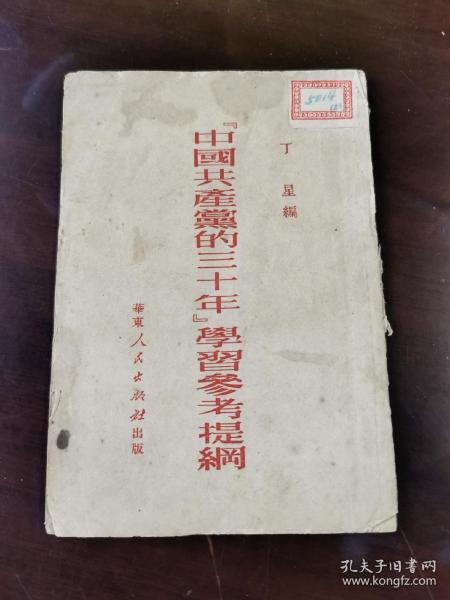 5014
丁星編
『中國共產黨的三十年』學習參考提綱
華東人民出版社出版
孔夫子旧书网
www.kongfz.com